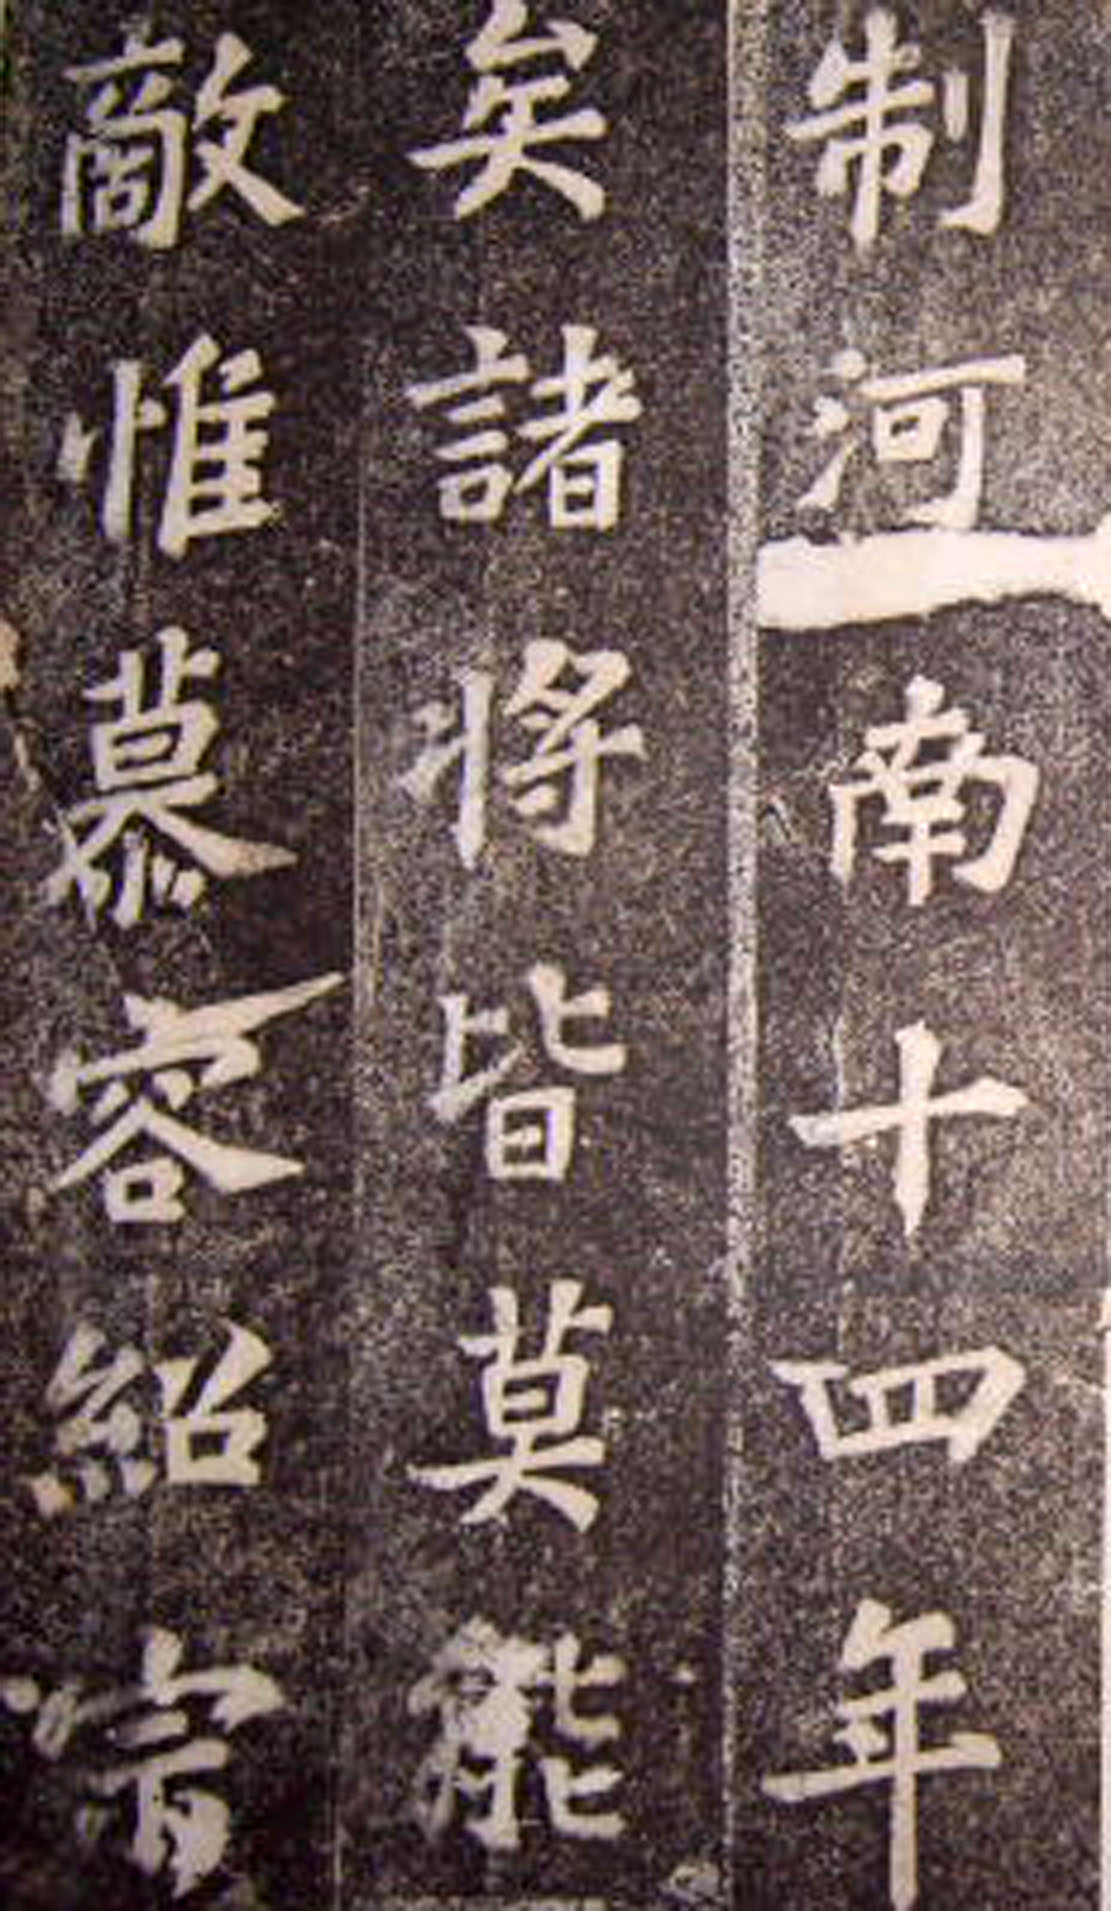 制河南十四年
矣諸將皆莫能
敵惟慕容紹宗